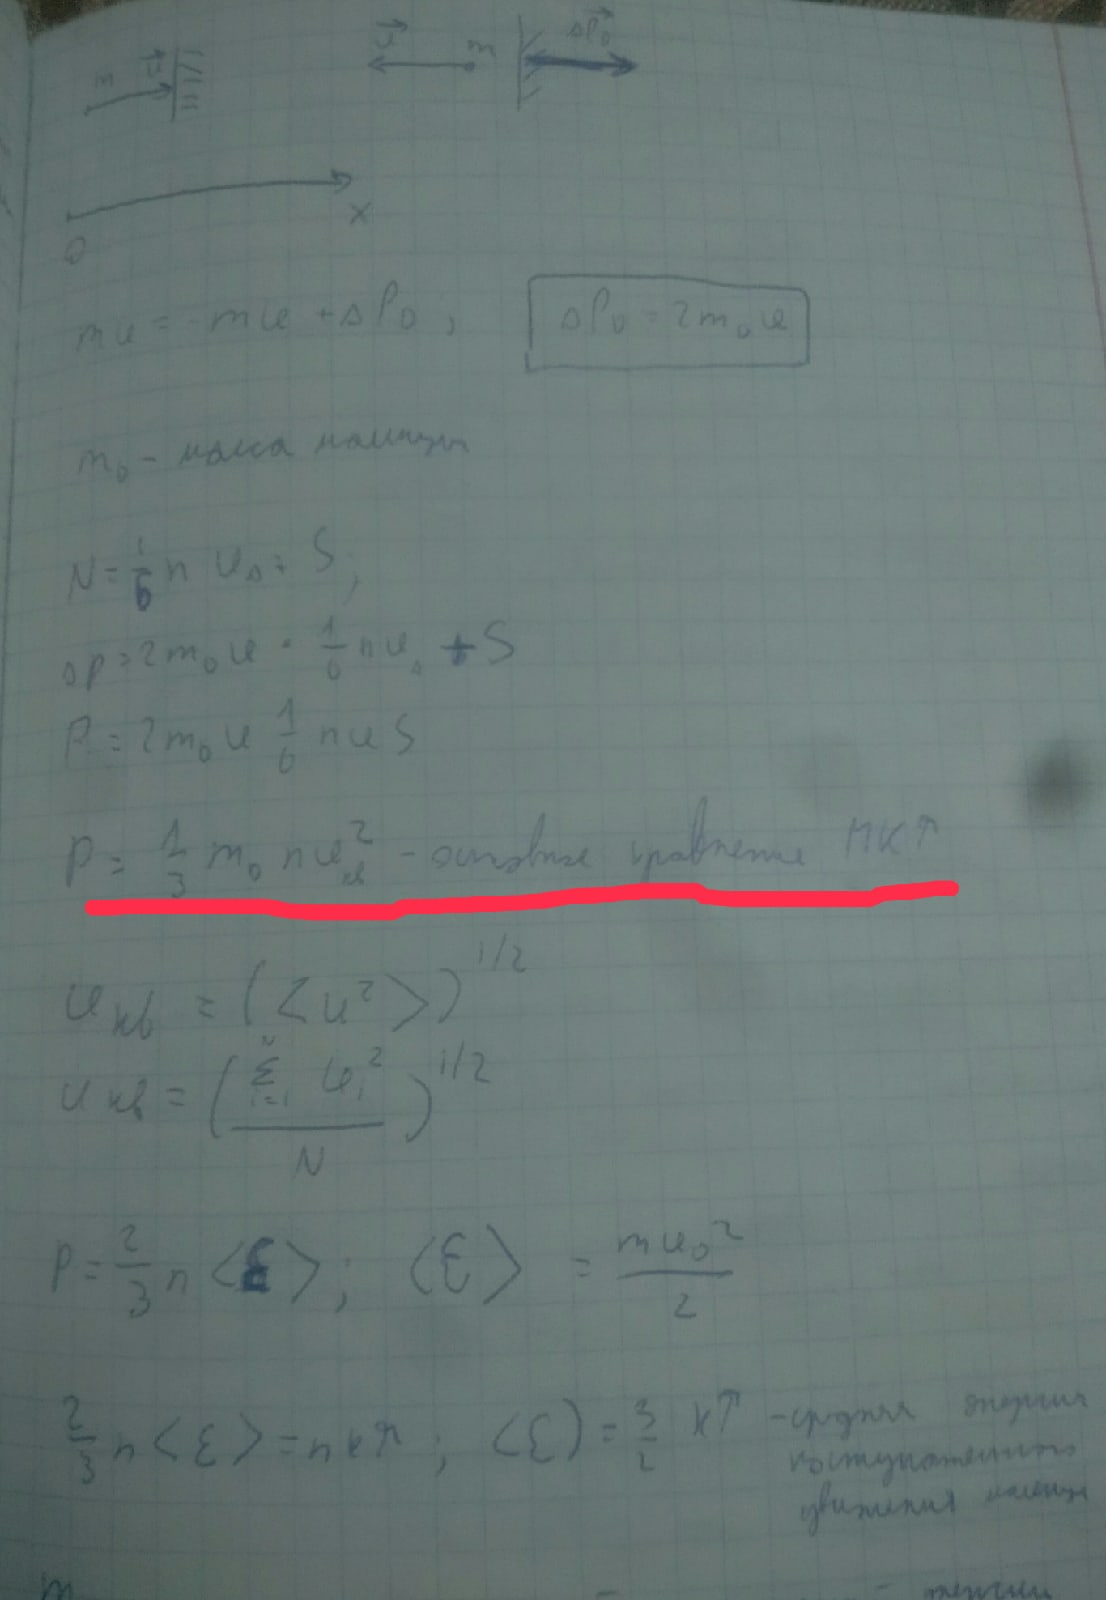 m v⃗ v⃗ m ΔP⃗₀
0 x
mυ = -mυ + ΔP₀; ΔP₀ = 2m₀υ
m₀ - масса частицы
N = 1/6 n υΔt S;
Δp = 2m₀υ · 1/6 nυΔtS
P = 2m₀υ 1/6 nυS
P = 1/3 m₀nυ²кв - основное уравнение МКТ
υкв = (<υ²>)^1/2
υкв = (∑ᵢ₌₁ᴺ υᵢ² / N)^1/2
P = 2/3 n <ε>; <ε> = mυ₀²/2
2/3 n <ε> = nкT; <ε) = 3/2 кT - средняя энергия
поступательного
движения частицы